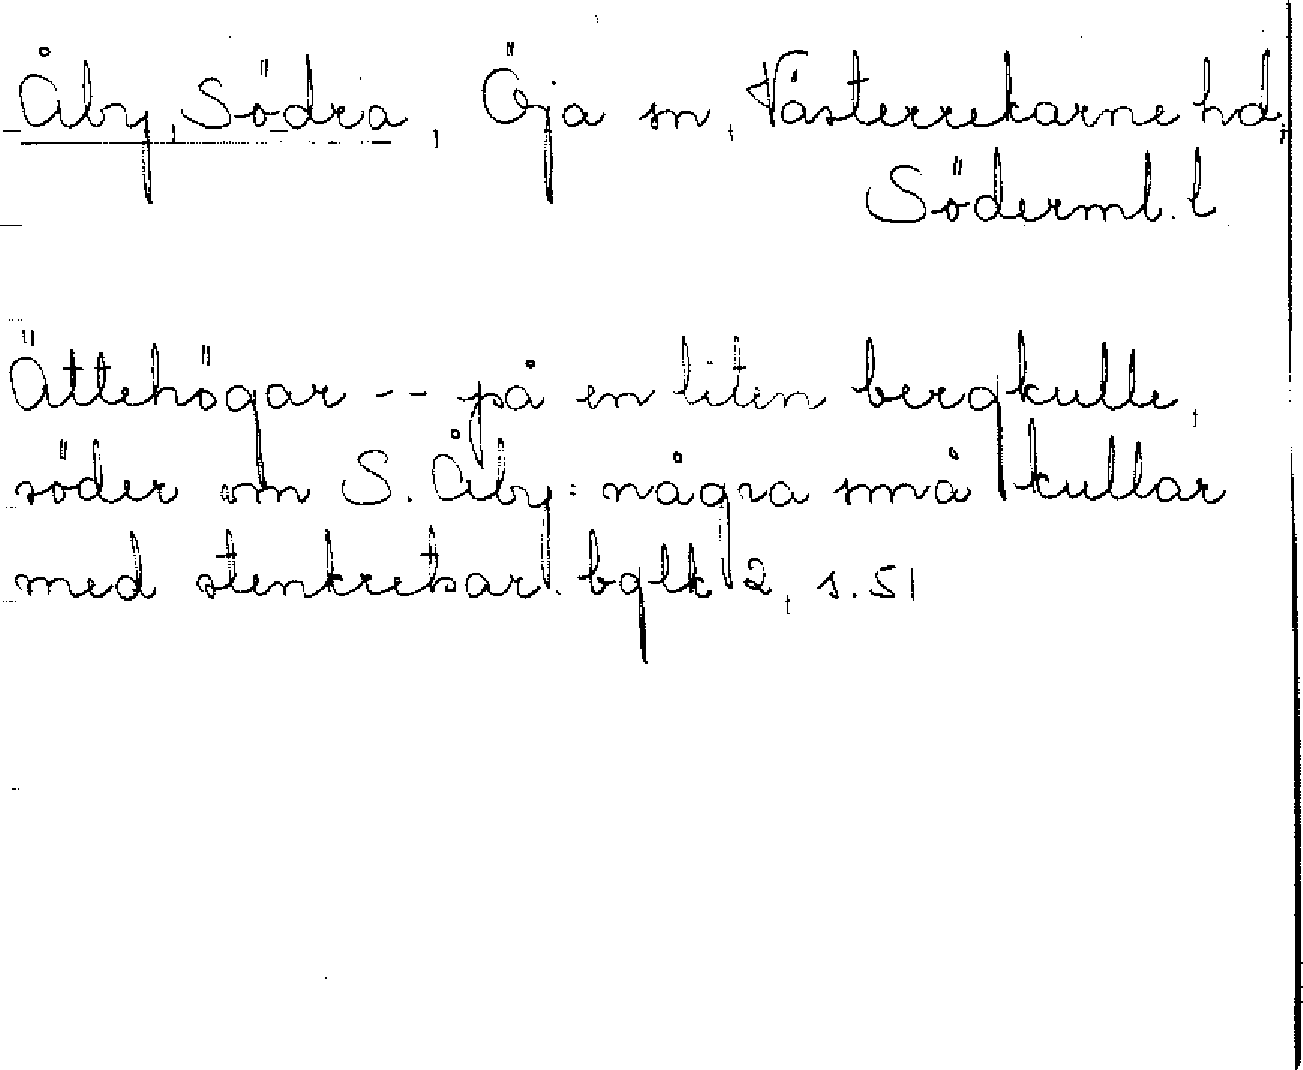 Åby, Södra, Öja sn, Västerrekarne hd,
Söderml. l
Ättehögar -- på en liten bergkulle,
söder om S. Åby: några små kullar
med stenkretsar. bglk 2, s. 51